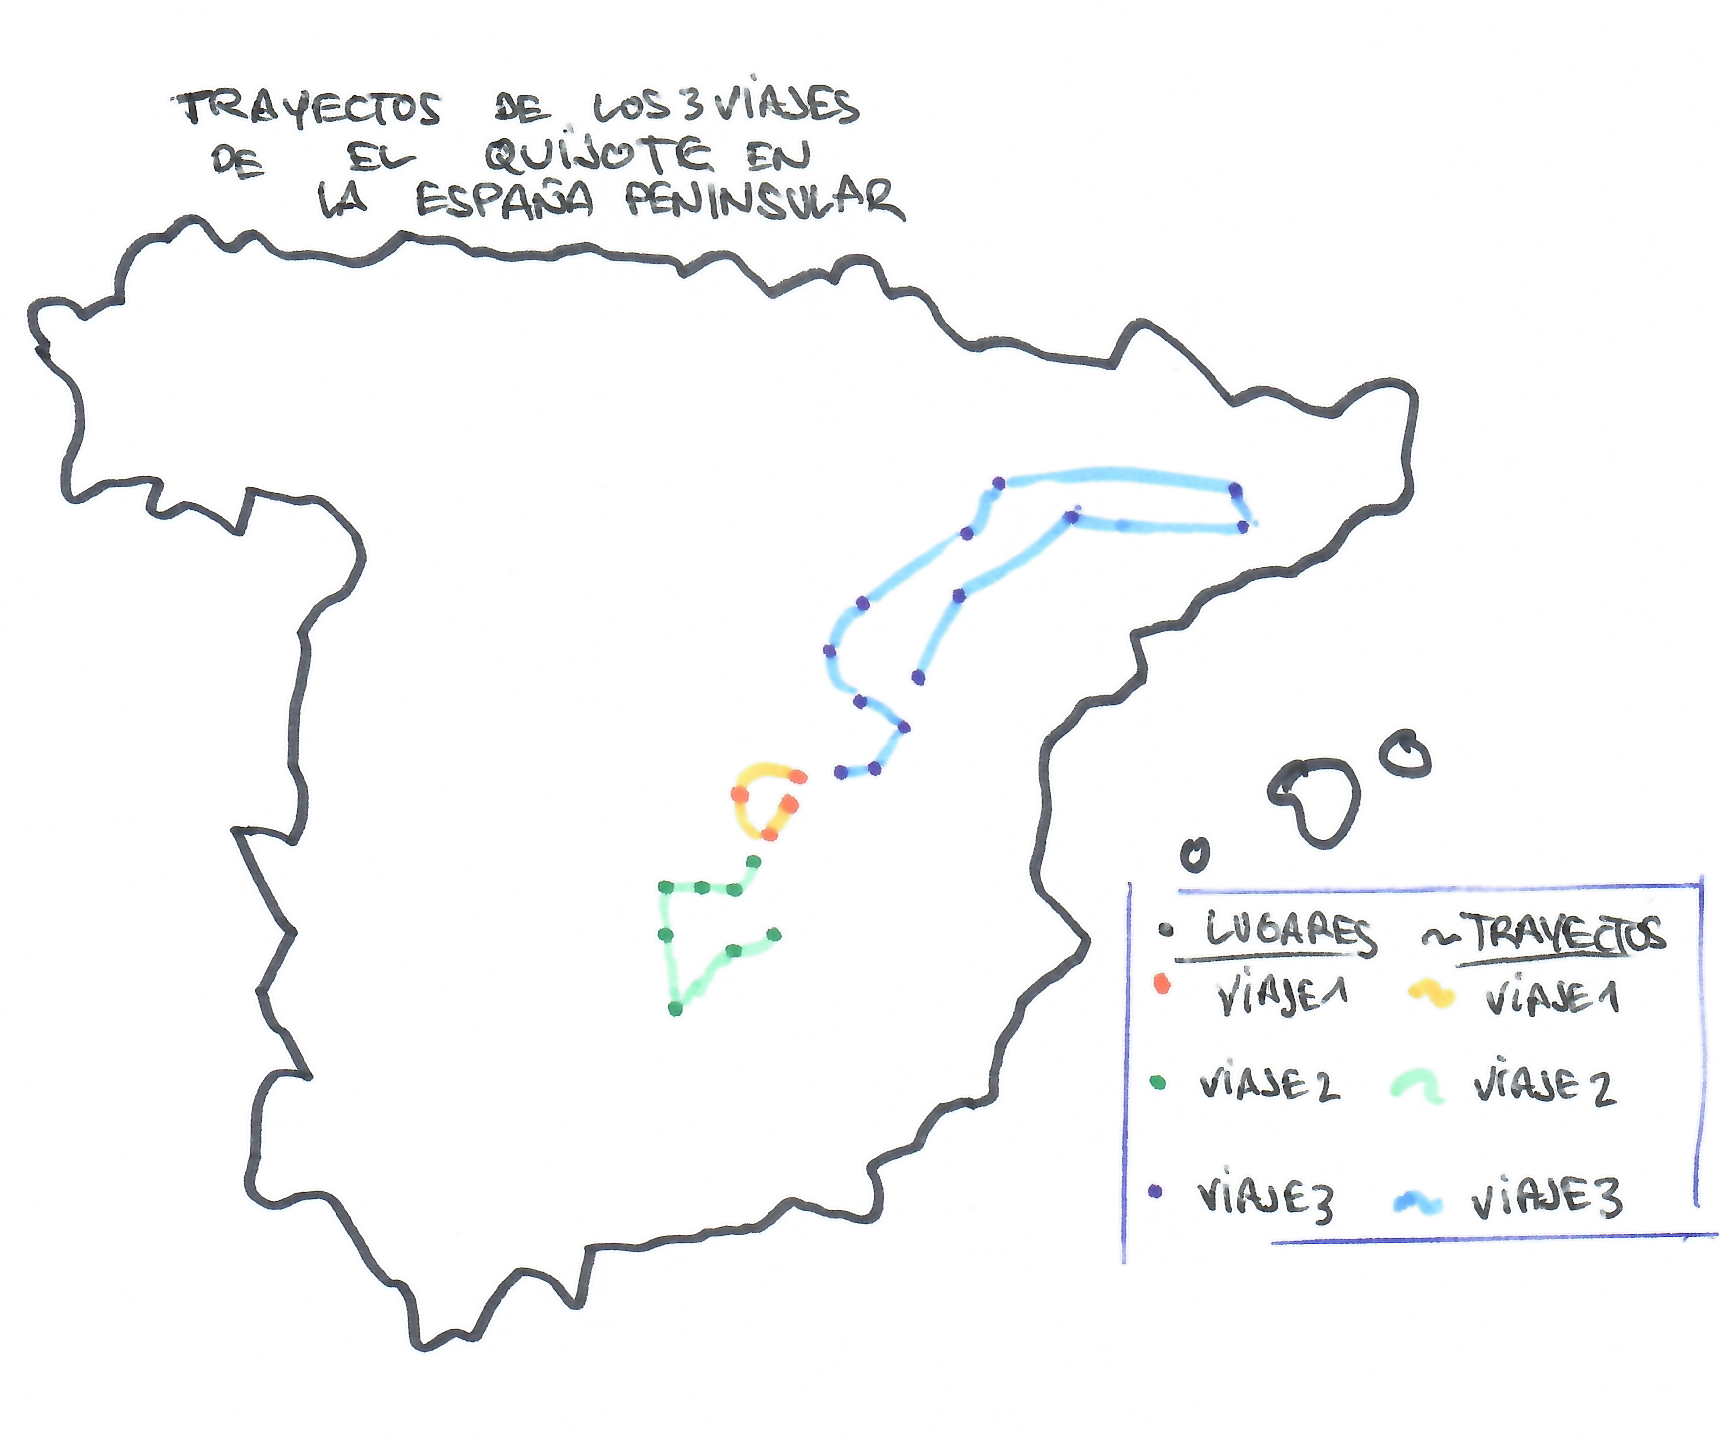 TRAYECTOS DE LOS 3 VIAJES
DE EL QUIJOTE EN
LA ESPAÑA PENINSULAR
• LUGARES ~ TRAYECTOS
VIAJE 1 VIAJE 1
VIAJE 2 VIAJE 2
VIAJE 3 VIAJE 3